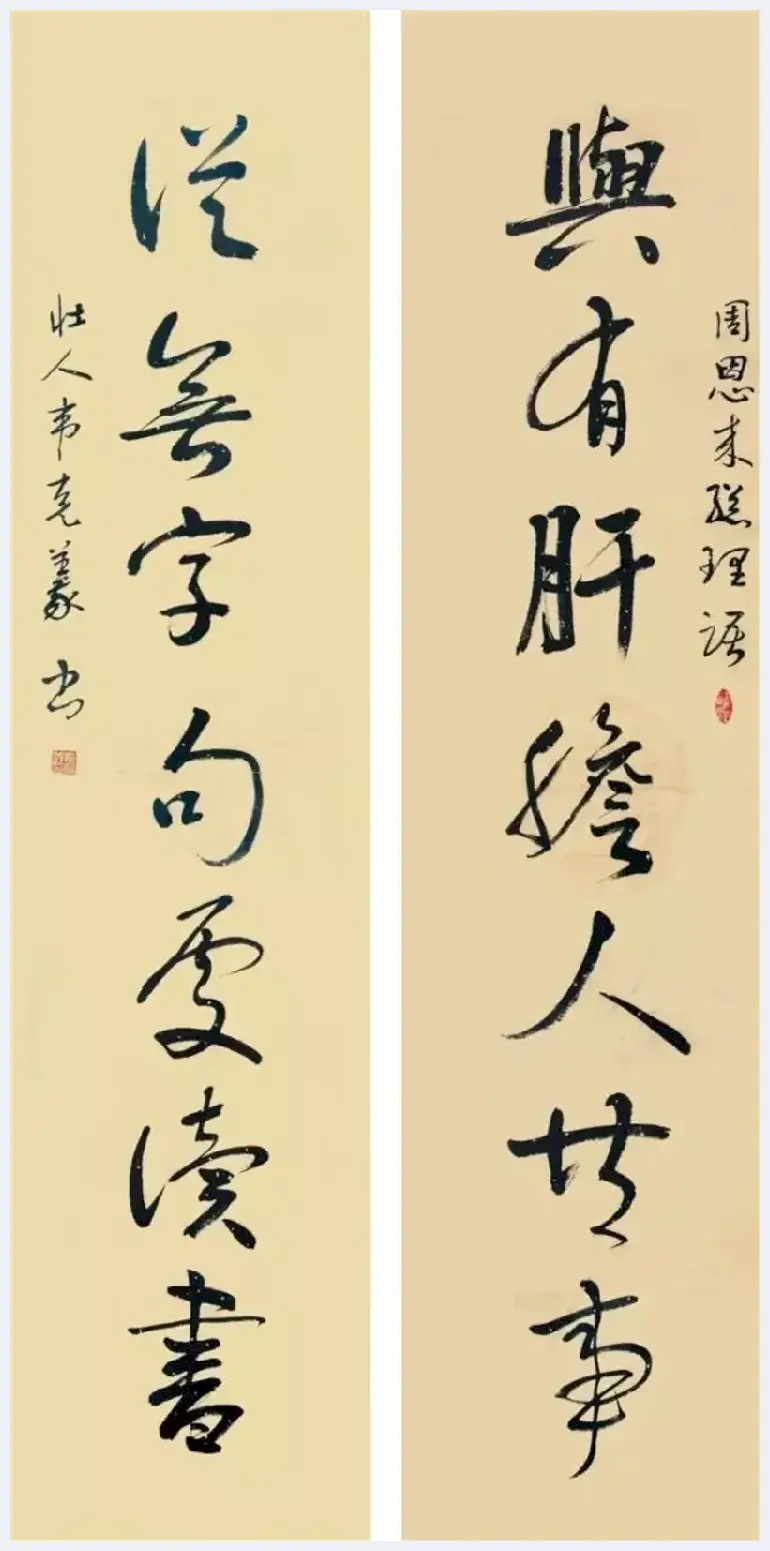 周恩来總理语
與有肝膽人共事
從無字句處讀書
壮人韦克義书